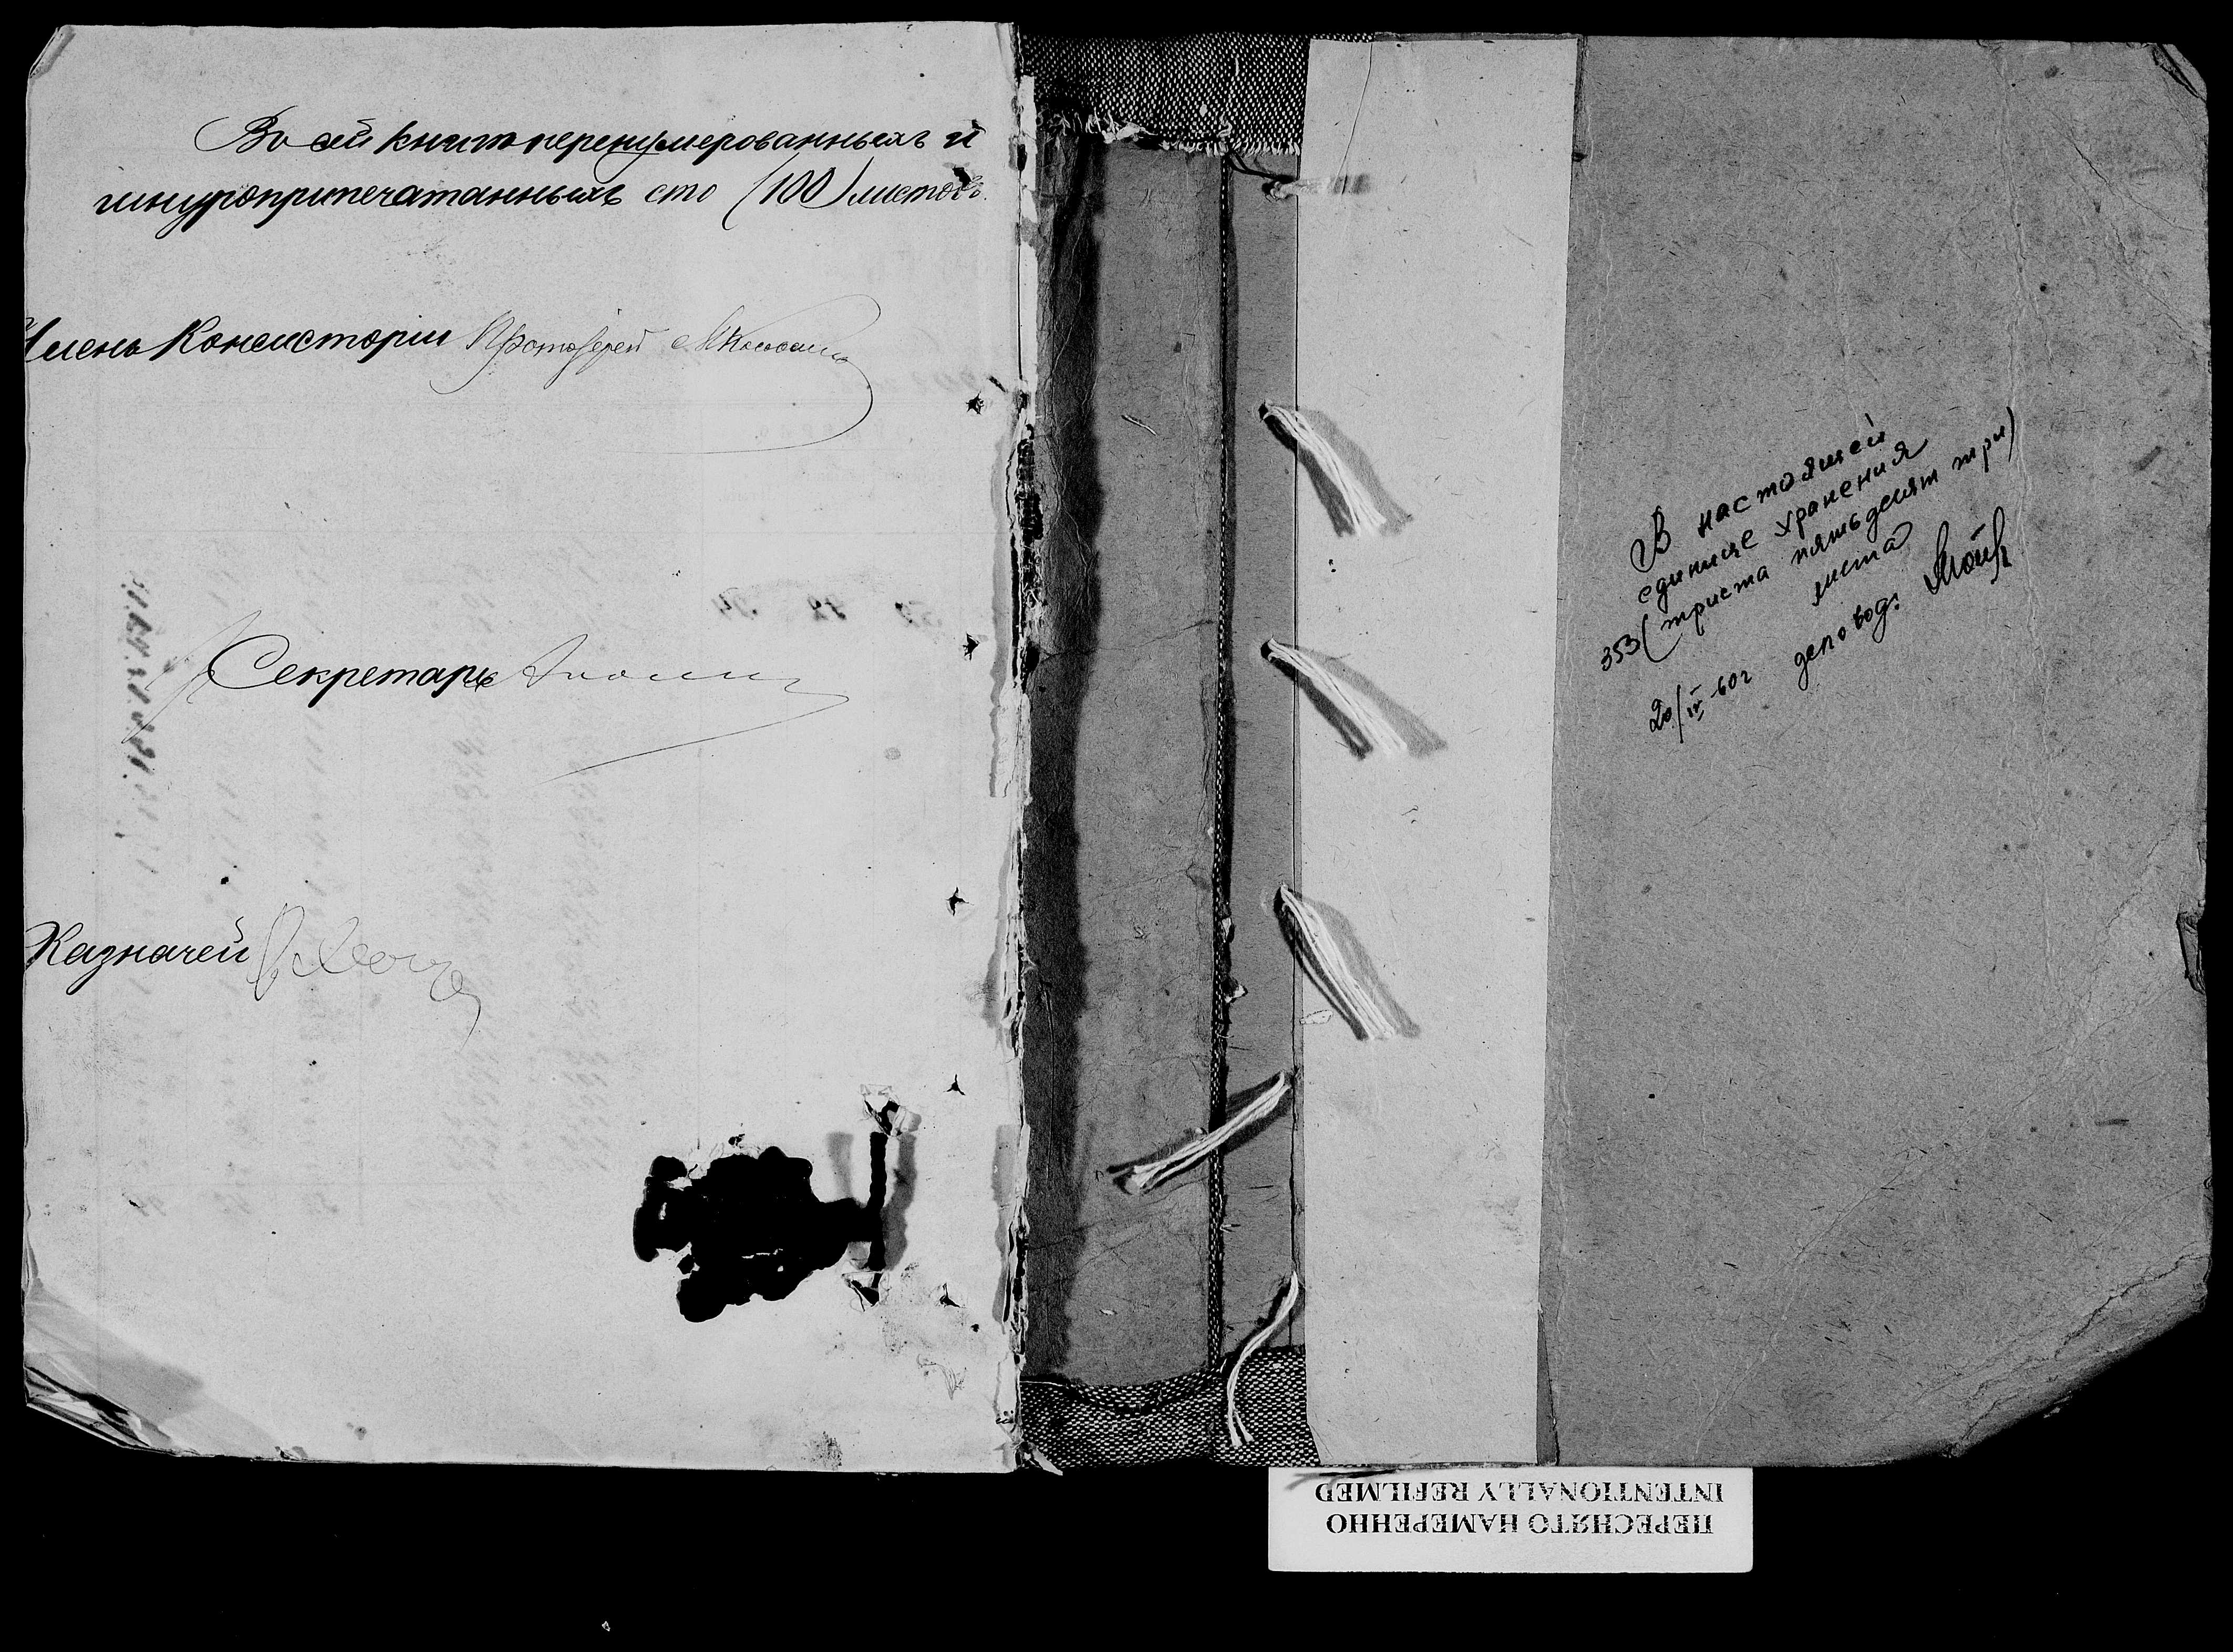 Въ сей книгѣ перенумерованныхъ и
шнуроприпечатанныхъ сто (100) листовъ.
Членъ Консисторіи Протоіерей
Секретарь
Казначей
В настоящей
единице хранения
353 (триста пятьдесят три)
листа
20/IV-60г деловод:
ПЕРЕСНЯТО НАМЕРЕННО
INTENTIONALLY REFILMED